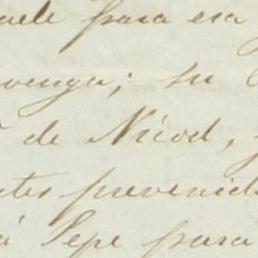 uele para esa
venga; su
de Nicod,
tes prevenid
á Pepe para